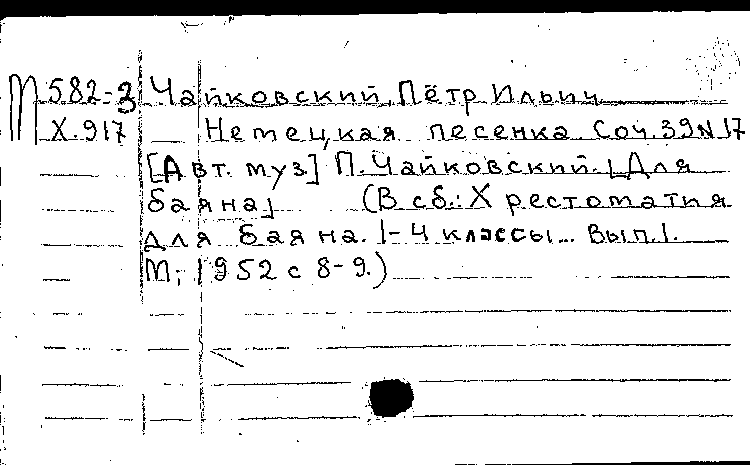 М 582-3 Чайковский, Пётр Ильич
Х.917 Немецкая песенка. Соч. 39 N 17
[Авт. муз.] П. Чайковский. [Для
баяна] (В сб.: Хрестоматия
для баяна. 1-4 классы... Вып. 1.
М., 1952 с 8-9.)